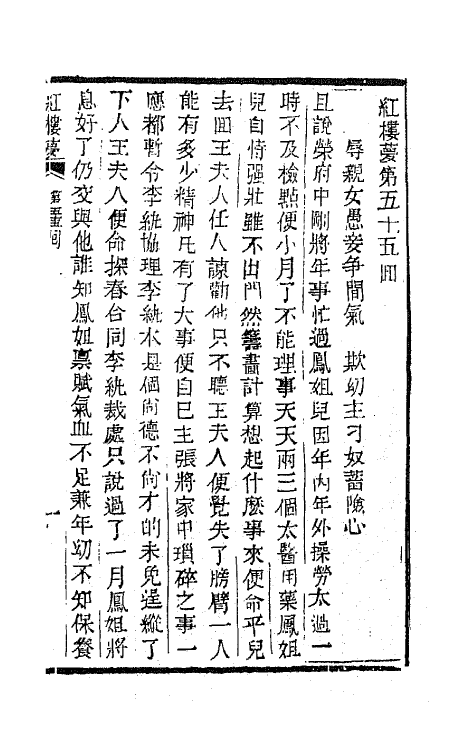 紅樓夢第五十五回
辱親女愚妾争閒氣　欺幼主刁奴蓄險心
且說榮府中剛將年事忙過鳳姐兒因年内年外操勞太過一
時不及檢點便小月了不能理事天天兩三個太醫用藥鳳姐
兒自恃强壯雖不出門然籌畫計算想起什麽事來便命平兒
去回王夫人任人諫勸他只不聽王夫人便覺失了膀臂一人
能有多少精神凡有了大事便自己主張將家中瑣碎之事一
應都暫令李紈協理李紈本是個尚德不尚才的未免逞縱了
下人王夫人便命探春合同李紈裁處只說過了一月鳳姐將
息好了仍交與他誰知鳳姐禀賦氣血不足兼年幼不知保養
紅樓夢　第五十五回　一